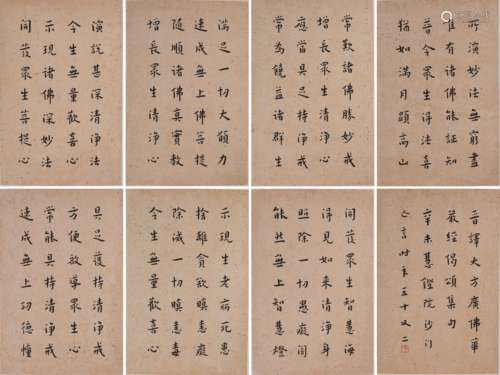 所演妙法無窮盡
唯有諸佛能證知
普令眾生得法喜
猶如滿月顯高山
常歎諸佛勝妙戒
增長眾生清淨心
應當具足持淨戒
常為饒益諸群生
滿足一切大願力
速成無上佛菩提
隨順諸佛真實教
增長眾生清淨心
演說甚深清淨法
令生無量歡喜心
示現諸佛深妙法
開發眾生菩提心
晉大方廣佛華
嚴經偈頌集句
辛未慧鐙院沙門
亡言時年五十又二
開發眾生智慧海
得見如來清淨身
照除一切愚癡闇
能然無上智慧燈
示現生老病死患
捨離貪欲瞋恚癡
除滅一切瞋恚毒
令生無量歡喜心
具足護持清淨戒
方便教導眾生心
常能具持清淨戒
速成無上功德幢